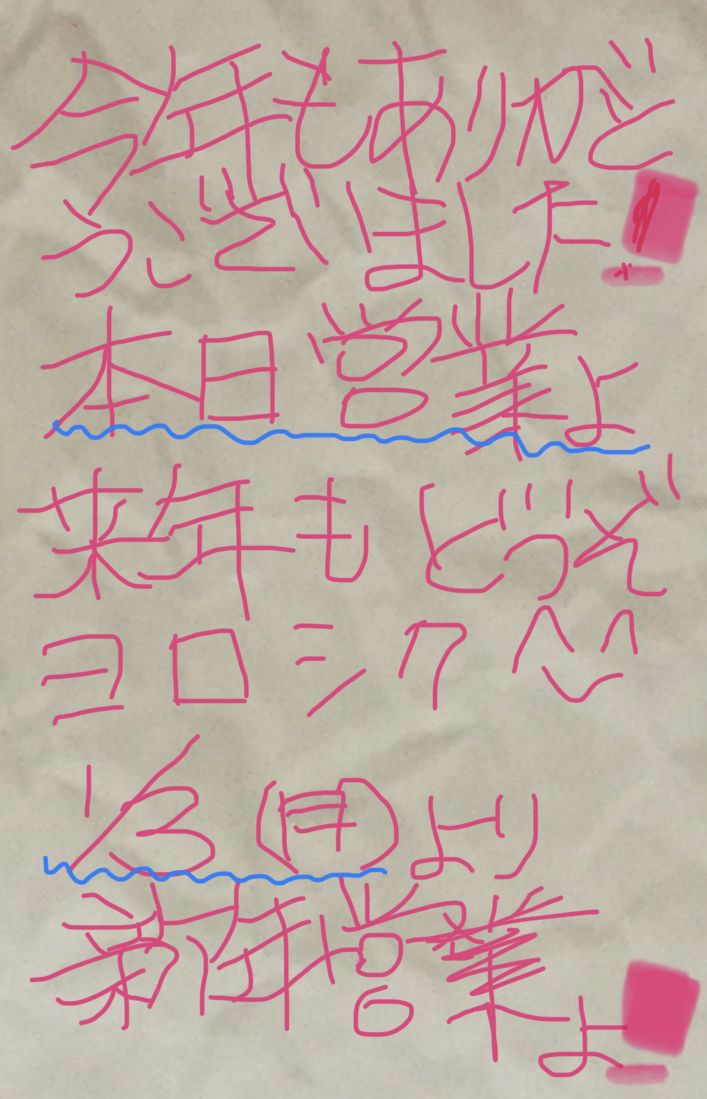 今年もありがと
うございました!
本日営業よ
来年もどうぞ
ヨロシク^^
1/3(日)より
新年営業よ!